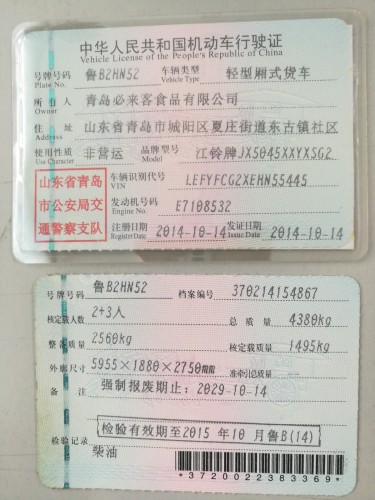 中华人民共和国机动车行驶证
Vehicle License of the People's Republic of China
号牌号码 鲁B2HN52 车辆类型 轻型厢式货车
Plate No. Vehicle Type
所有人 青岛必来客食品有限公司
Owner
住址 山东省青岛市城阳区夏庄街道东古镇社区
Address
使用性质 非营运 品牌型号 江铃牌JX5045XXYXSG2
Use Character Model
山东省青岛 车辆识别代号 LEFYFCG2XEHN55445
VIN
市公安局交 发动机号码 E7108532
Engine No.
通警察支队 注册日期 2014-10-14 发证日期 2014-10-14
Register Date Issue Date
号牌号码 鲁B2HN52 档案编号 370214154867
核定载人数 2+3人 总质量 4380kg
整备质量 2560kg 核定载质量 1495kg
外廓尺寸 5955×1880×2750 准牵引总质量
备注 强制报废期止：2029-10-14
检验有效期至2015年10月鲁B(14)
检验记录
柴油
*3720022383369*